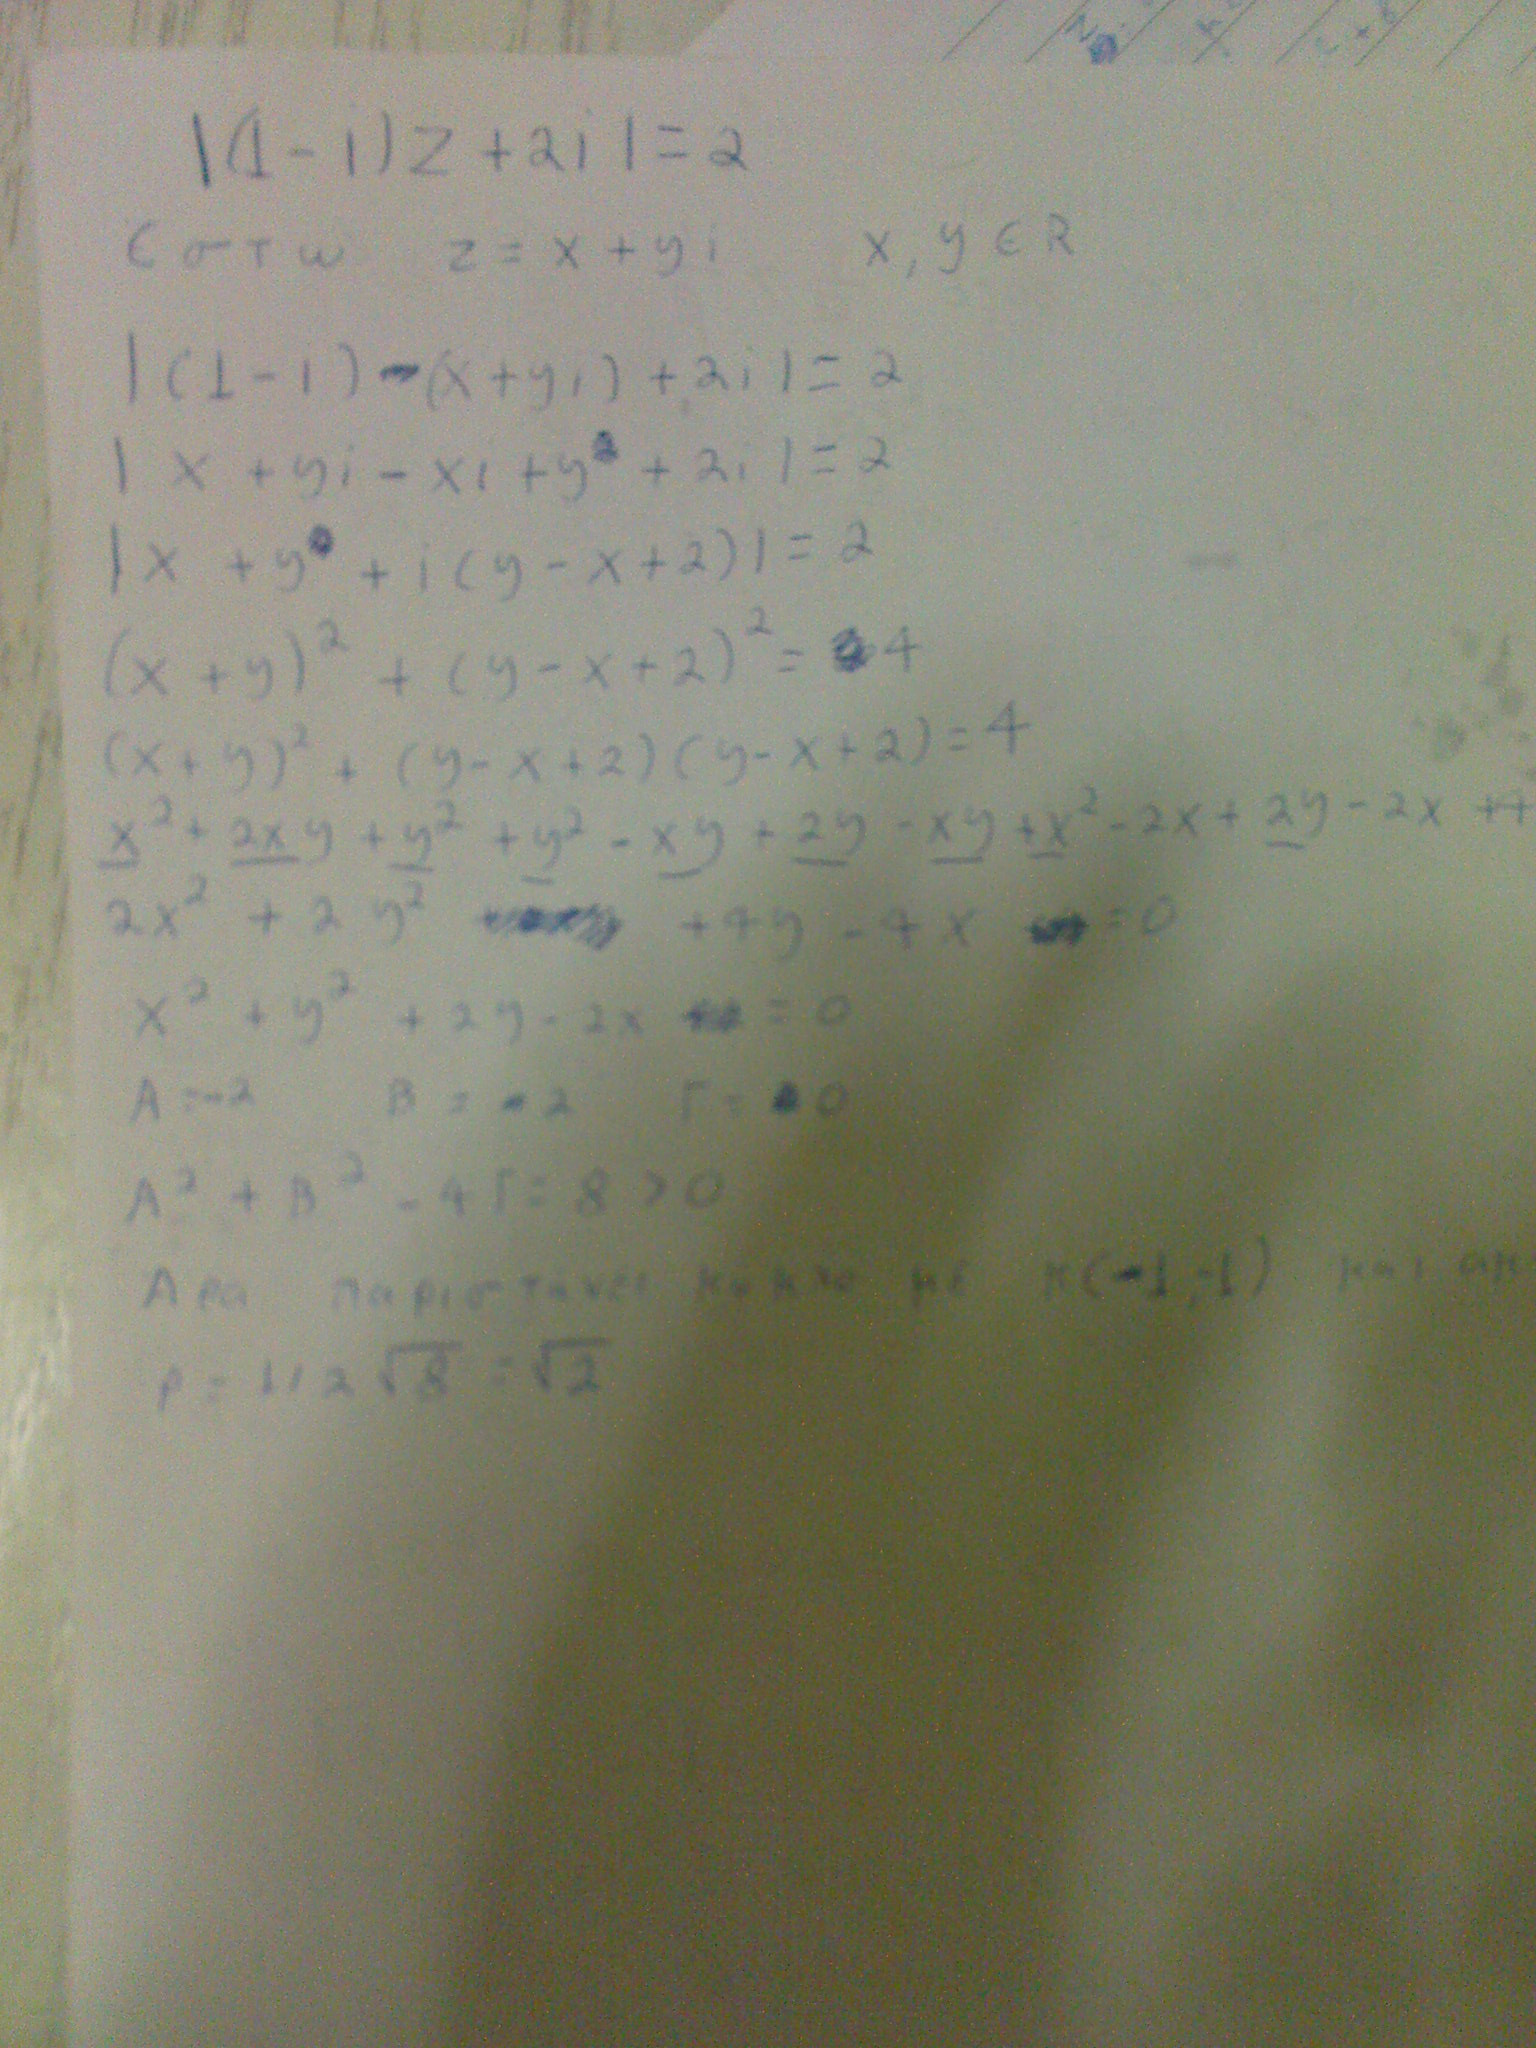 |(1-i)z+2i|=2
Εστω z=x+yi x,y∈R
|(1-i)(x+yi)+2i|=2
|x+yi-xi+y+2i|=2
|x+y+i(y-x+2)|=2
(x+y)²+(y-x+2)²=4
(x+y)²+(y-x+2)(y-x+2)=4
x²+2xy+y²+y²-xy+2y-xy+x²-2x+2y-2x+
2x²+2y²+4y-4x=0
x²+y²+2y-2x=0
A=-2 B=2 Γ=0
A²+B²-4Γ=8>0
Αρα παριστανει κυκλο με κ(1,-1) και
ρ=1/2√8=√2